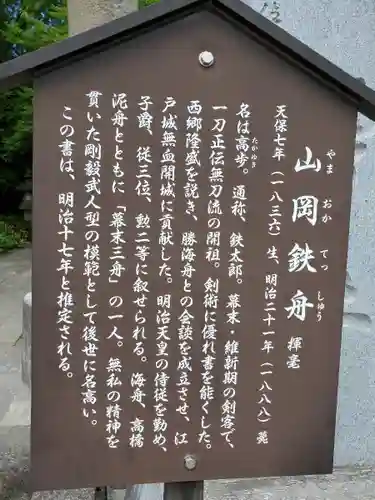 山岡鉄舟 揮毫
やま おか てっ しゅう
天保七年(一八三六)生、明治二十一年(一八八八)歿
名は高歩。通称、鉄太郎。幕末・維新期の剣客で、
たかゆき
一刀正伝無刀流の開祖。剣術に優れ書を能くした。
西郷隆盛を説き、勝海舟との会談を成立させ、江
戸城無血開城に貢献した。明治天皇の侍従を勤め、
子爵、従三位、勲二等に叙せられる。海舟、高橋
泥舟とともに「幕末三舟」の一人。無私の精神を
貫いた剛毅武人型の模範として後世に名高い。
この書は、明治十七年と推定される。